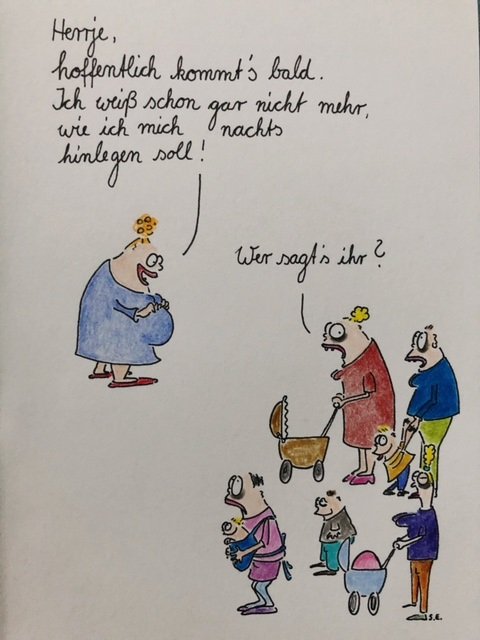 Herrje,
hoffentlich kommt's bald.
Ich weiß schon gar nicht mehr,
wie ich mich nachts
hinlegen soll!
Wer sagt's ihr?
S.E.